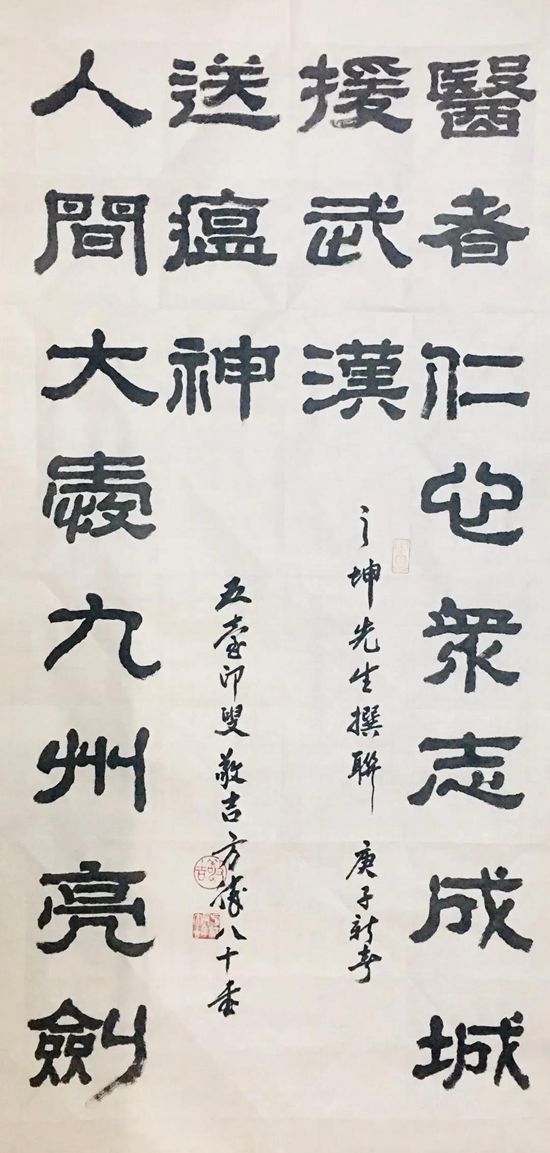 醫者仁心眾志成城
援武漢
人間大愛九州亮劍
送瘟神
之坤先生撰聯 庚子新春
五臺印叟敬吉方八十